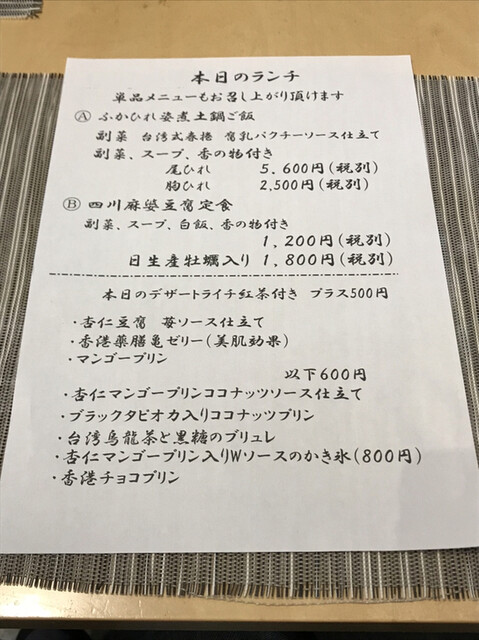 本日のランチ
単品メニューもお召し上がり頂けます
Ⓐ ふかひれ姿煮土鍋ご飯
副菜 台湾式春捲 腐乳パクチーソース仕立て
副菜、スープ、香の物付き
尾ひれ 5,600円(税別)
胸ひれ 2,500円(税別)
Ⓑ 四川麻婆豆腐定食
副菜、スープ、白飯、香の物付き
1,200円(税別)
日生産牡蠣入り 1,800円(税別)
本日のデザートライチ紅茶付き プラス500円
・杏仁豆腐 苺ソース仕立て
・香港薬膳亀ゼリー(美肌効果)
・マンゴープリン
以下600円
・杏仁マンゴープリンココナッツソース仕立て
・ブラックタピオカ入りココナッツプリン
・台湾烏龍茶と黒糖のブリュレ
・杏仁マンゴープリン入りWソースのかき氷(800円)
・香港チョコプリン